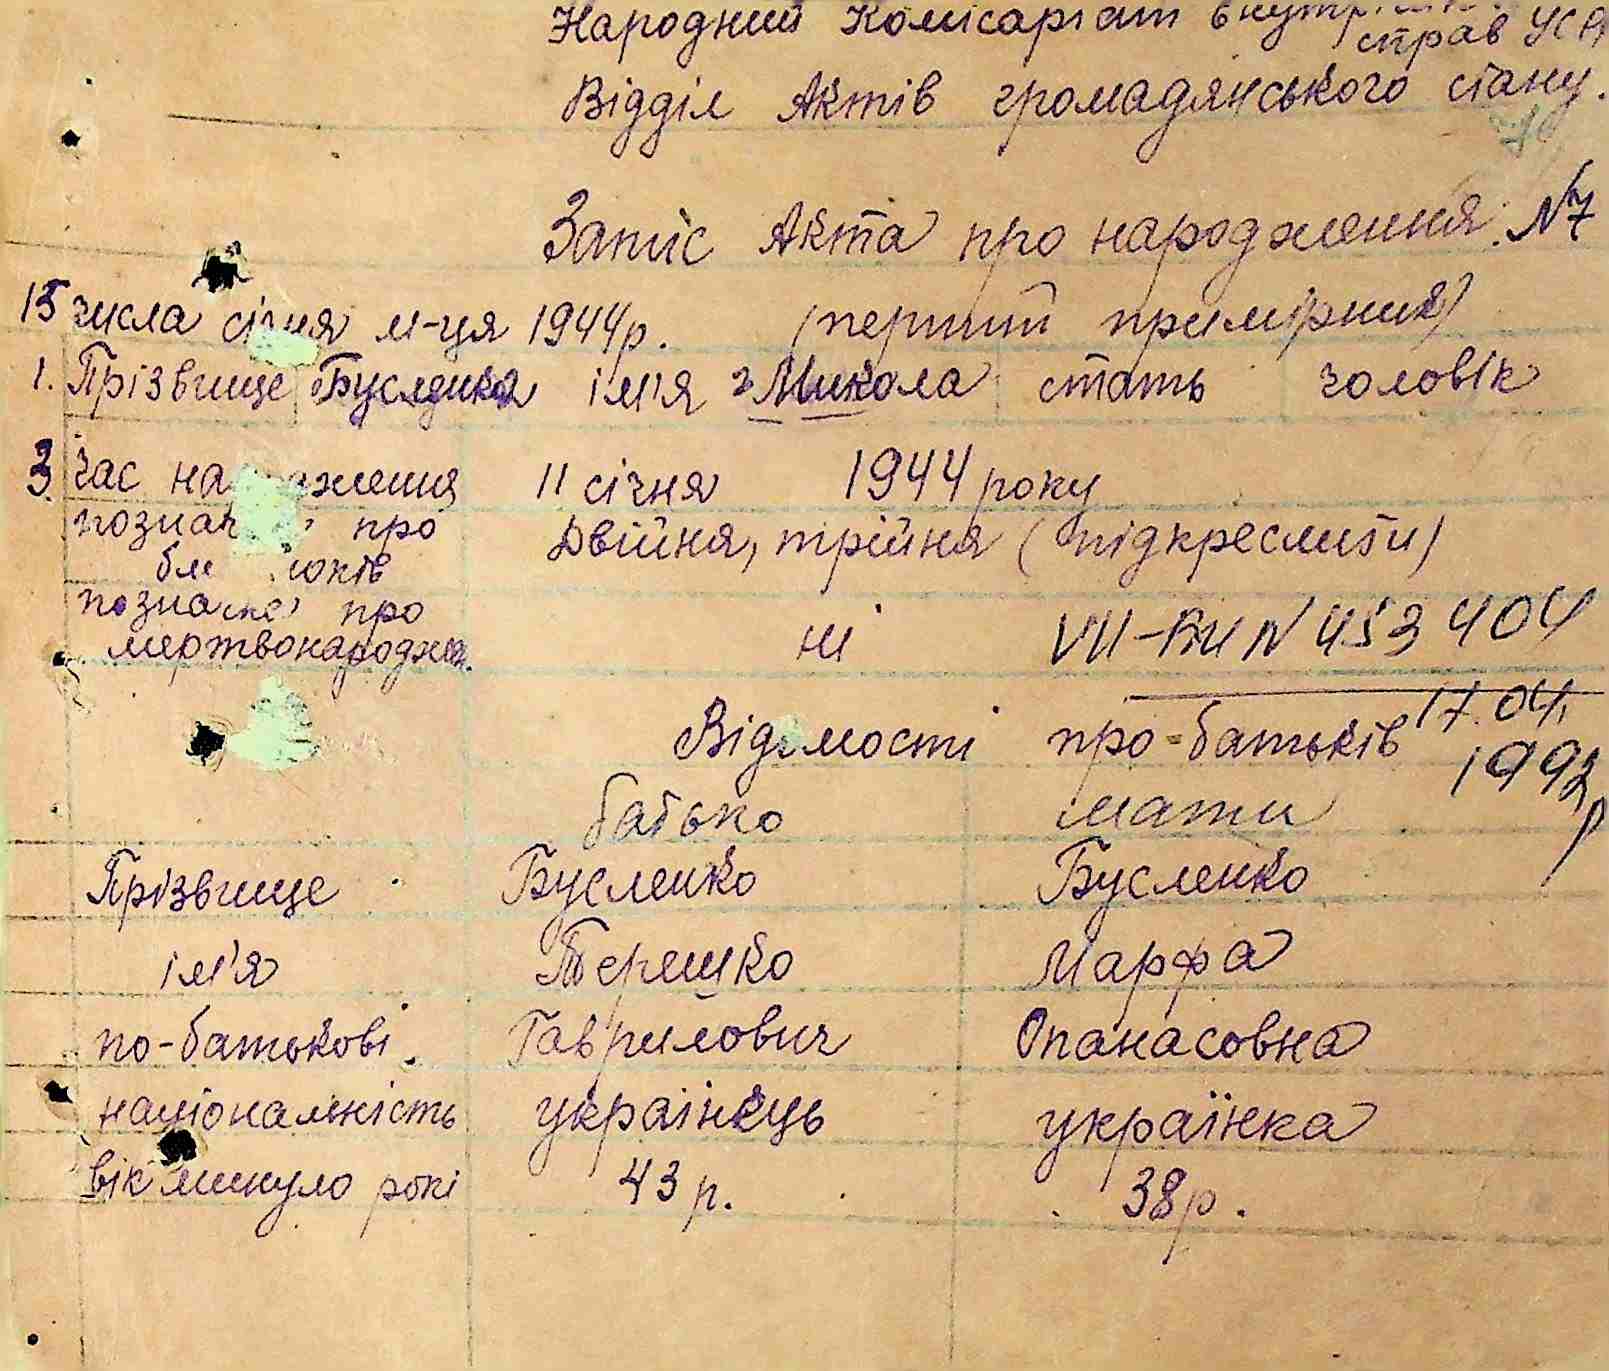 Народний Комісаріат внутрішніх
справ УСР
Відділ Актів громадянського стану.
Запис Акта про народження. № 7
15 числа січня м-ця 1944 р. (перший примірник)
1. Прізвище ім'я 2 Микола стать чоловік
3. Час народження 11 січня 1944 року
позначка про Двійня, трійня (підкреслити)
близнюків
позначка про
мертвонародж. ні VII-БИ N 453404
17.04.
Відомості про батьків 1992 р
батько мати
Прізвище Бусленко Бусленко
ім'я Терешко Марфа
по-батькові Гаврилович Опанасовна
національність українець українка
вік минуло рокі 43 р. 38 р.